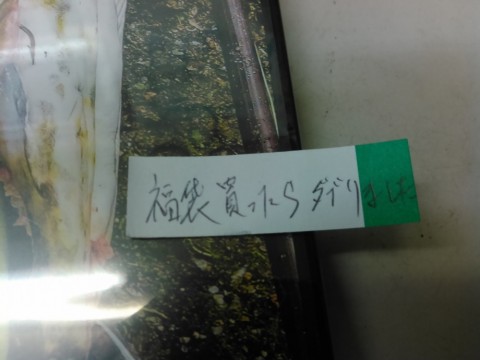 福袋買ったらダブりました